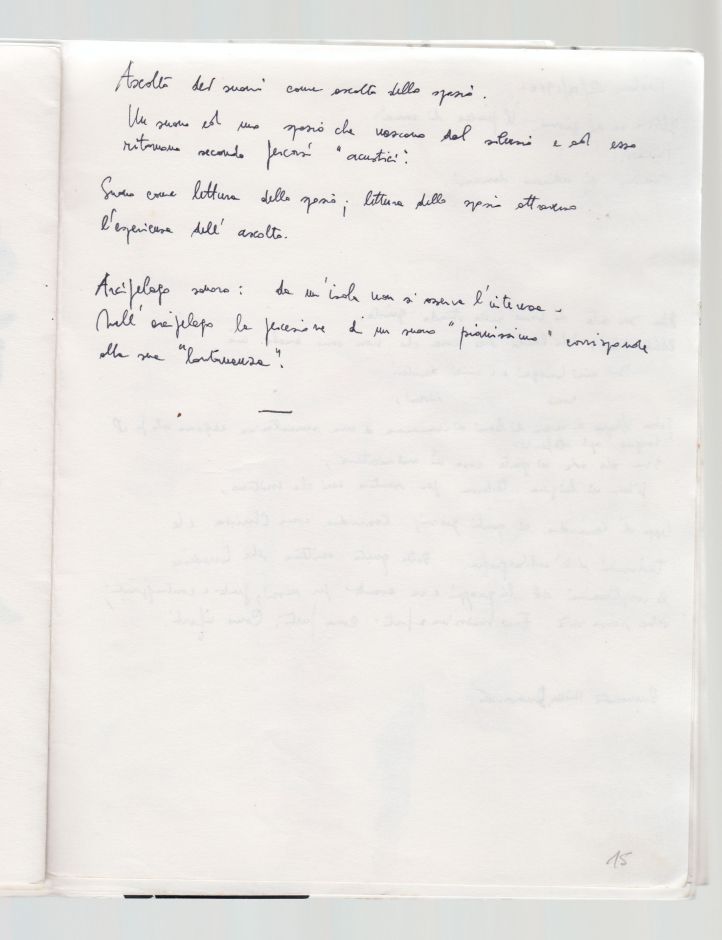 Ascolto dei suoni come ascolto dello spazio.
Un suono ed uno spazio che nascono dal silenzio e ad esso
ritornano secondo percorsi "acustici".
Suono come lettura dello spazio; lettura dello spazio attraverso
l'esperienza dell'ascolto.
Arcipelago sonoro: da un'isola non si osserva l'interezza.
Nell'arcipelago la percezione di un suono "pianissimo" corrisponde
alla sua "lontananza".
15